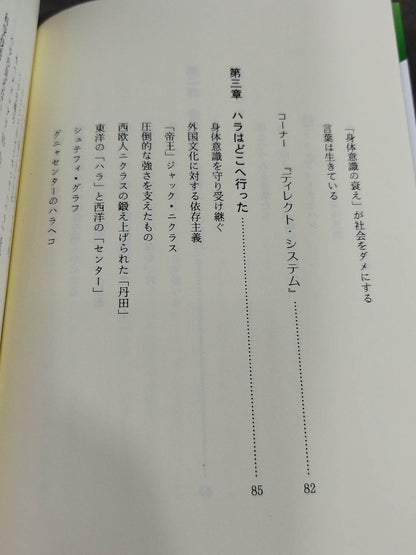 「身体意識の衰え」が社会をダメにする
言葉は生きている
コーナー 『ディレクト・システム』 82
第三章 ハラはどこへ行った 85
身体意識を守り受け継ぐ
外国文化に対する依存主義
「帝王」ジャック・ニクラス
圧倒的な強さを支えたもの
西欧人ニクラスの鍛え上げられた「丹田」
東洋の「ハラ」と西洋の「センター」
シュテフィ・グラフ
グニャセンターのハラヘコ